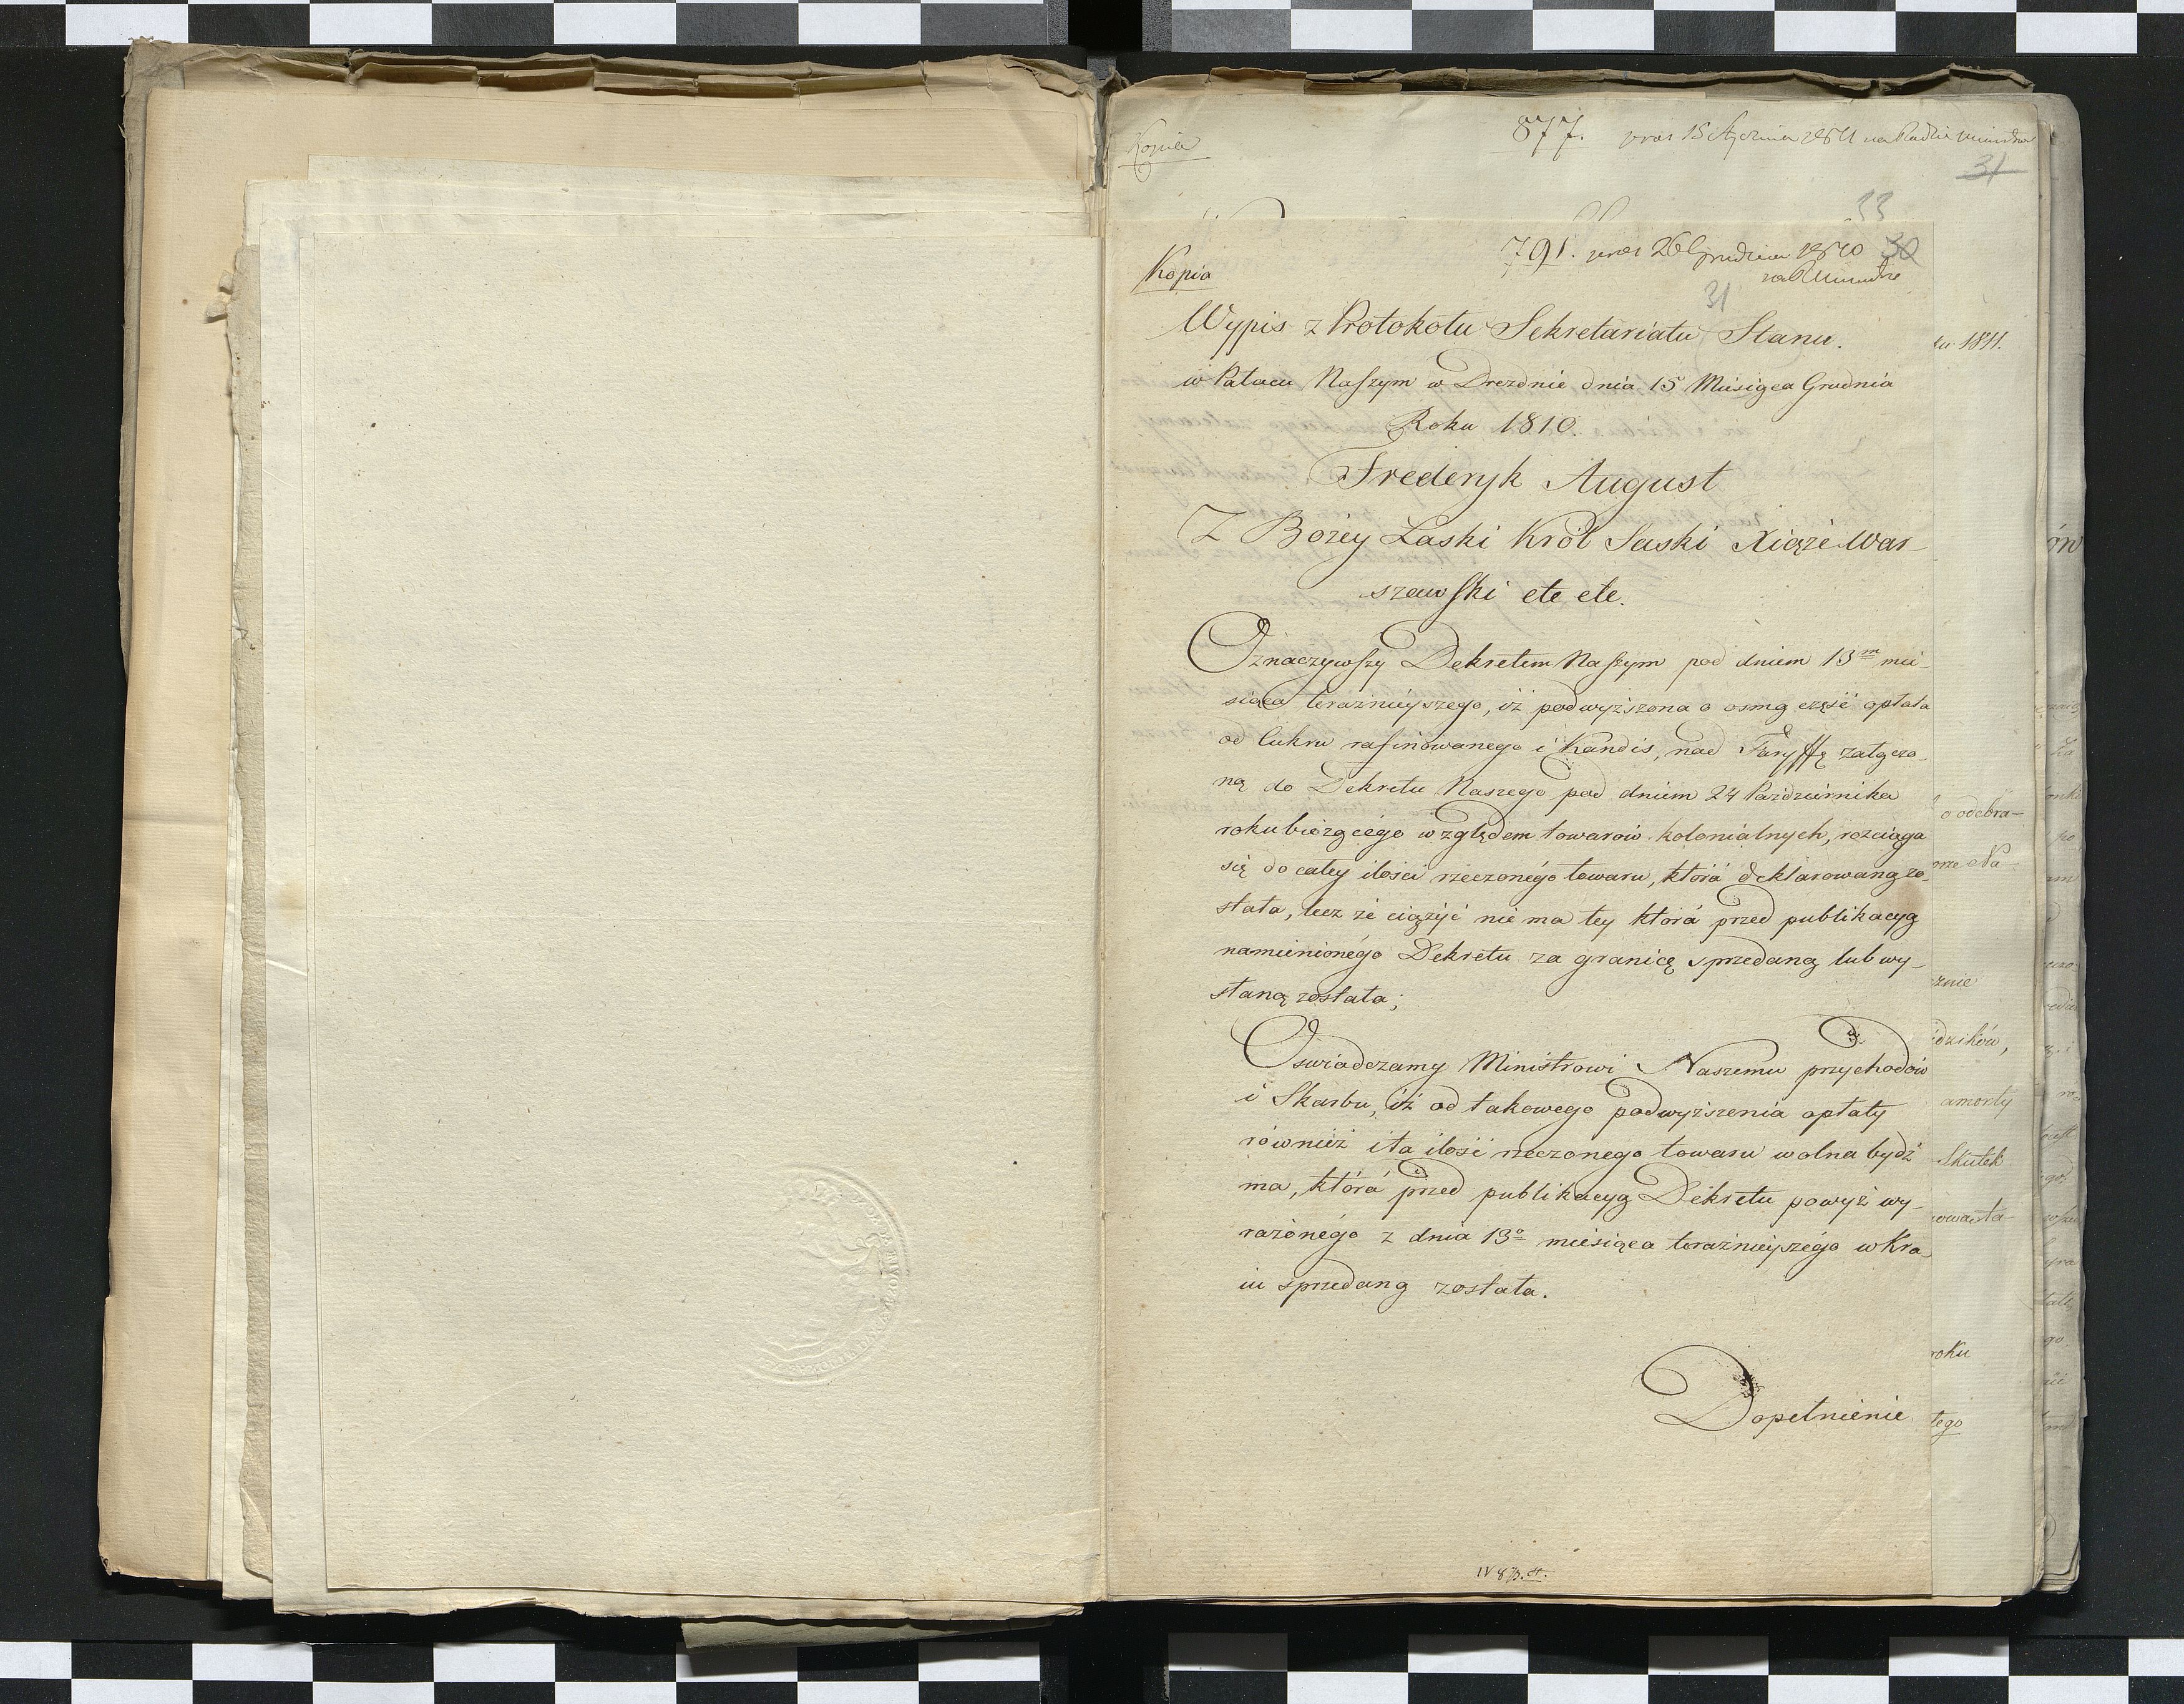 Kopia
877.
31
33
791. 26 Grudnia 1810 30
Kopia
31
Wypis z Protokołu Sekretariatu Stanu.
w Pałacu Naszym w Dreznie dnia 15 Miesiąca Grudnia
Roku 1810.
Frederyk August
Z Bożey Łaski Król Saski Xiąże War-
szawski etc etc.
Oznaczywszy Dekretem Naszym pod dniem 13m mie-
siąca teraźnieyszego, iż podwyższona o osmą część opłata
od Cukru rafinowanego i Kandis, nad Taryffę załączo-
ną do Dekretu Naszego pod dniem 24 Października
roku bieżącégo względem towarów kolonialnych, rozciąga
się do całey ilości rzeczonégo towaru, którá deklarowaną zo-
stała, lecz że ciążyć nie ma tey którá przed publikacyą
namienionégo Dekretu za granicę sprzedaną lub wy-
słaną została;
Oświadczamy Ministrowi Naszemu przychodów
i Skarbu, iż od takowego podwyższenia opłaty
również i ta ilość rzeczonego towaru wolna bydź
ma, którá przed publikacyą Dekretu powyż wy-
rażonégo z dnia 13o miesiąca teraźnieyszégo w Kra-
iu sprzedaną została.
Dopełnienie
ku 1811.
o odebra-
znie
amorty
Skutek
roku
tego